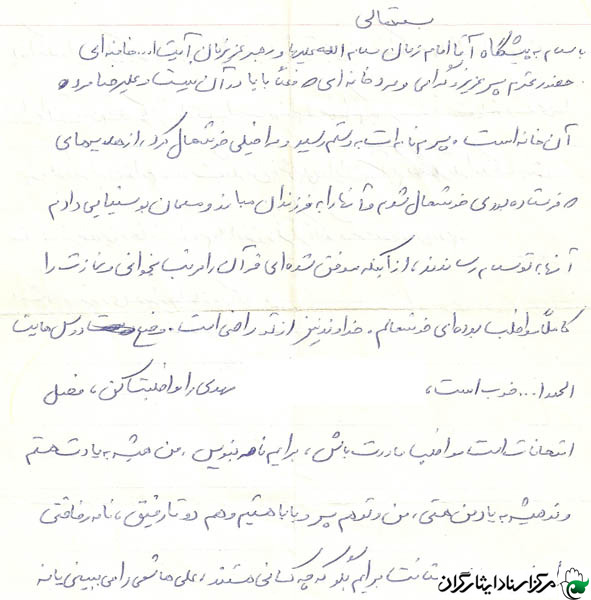 بسمه تعالی
با سلام به پیشگاه آقا امام زمان سلام الله علیها و رهبر عزیزمان آیت ا... خامنه‌ای
حضور محترم پسر عزیز و گرامی و مرد خانه‌ای که فعلاً بابا در آن نیست و علیرضا مرد
آن خانه است. پسرم نامه‌ات به دستم رسید و مرا خیلی خوشحال کرد، از عکسهای
که فرستاده بودی خوشحال شدم و آنها را به فرزندان مبارز و مسلمان بوسنیایی دادم
آنها به تو سلام رساندند، از اینکه موفق شده‌ای قرآن را مرتب بخوانی و نمازت را
کاملاً مواظب بوده‌ای خوشحالم. خداوند نیز از تو راضی است. وضع درس‌هایت
الحمدا... خوب است، مهدی را مواظبت کن، فصل
امتحانات است مواظب مادرت باش، برایم نامه بنویس. من همیشه به یادت هستم
و تو همیشه به یاد من هستی، من و تو هم پسر و بابا هستیم و هم دو تا رفیق، نامه رفاقتی
برایم بگو که چه کسانی هستند، علی هاشمی را می بینی یا نه
مرکز اسناد ایثارگران